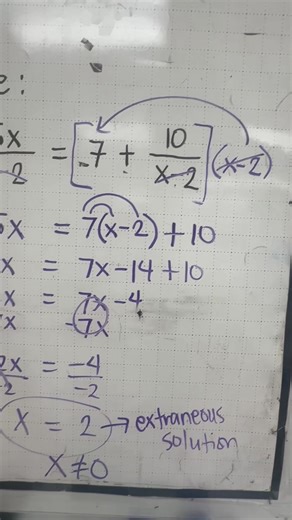 e:
5x/-2 = [7 + 10/(x-2)](x-2)
5x = 7(x-2)+10
x = 7x-14+10
x = 7x-4
7x -7x
2x/2 = -4/-2
x = 2 → extraneous solution
x≠0